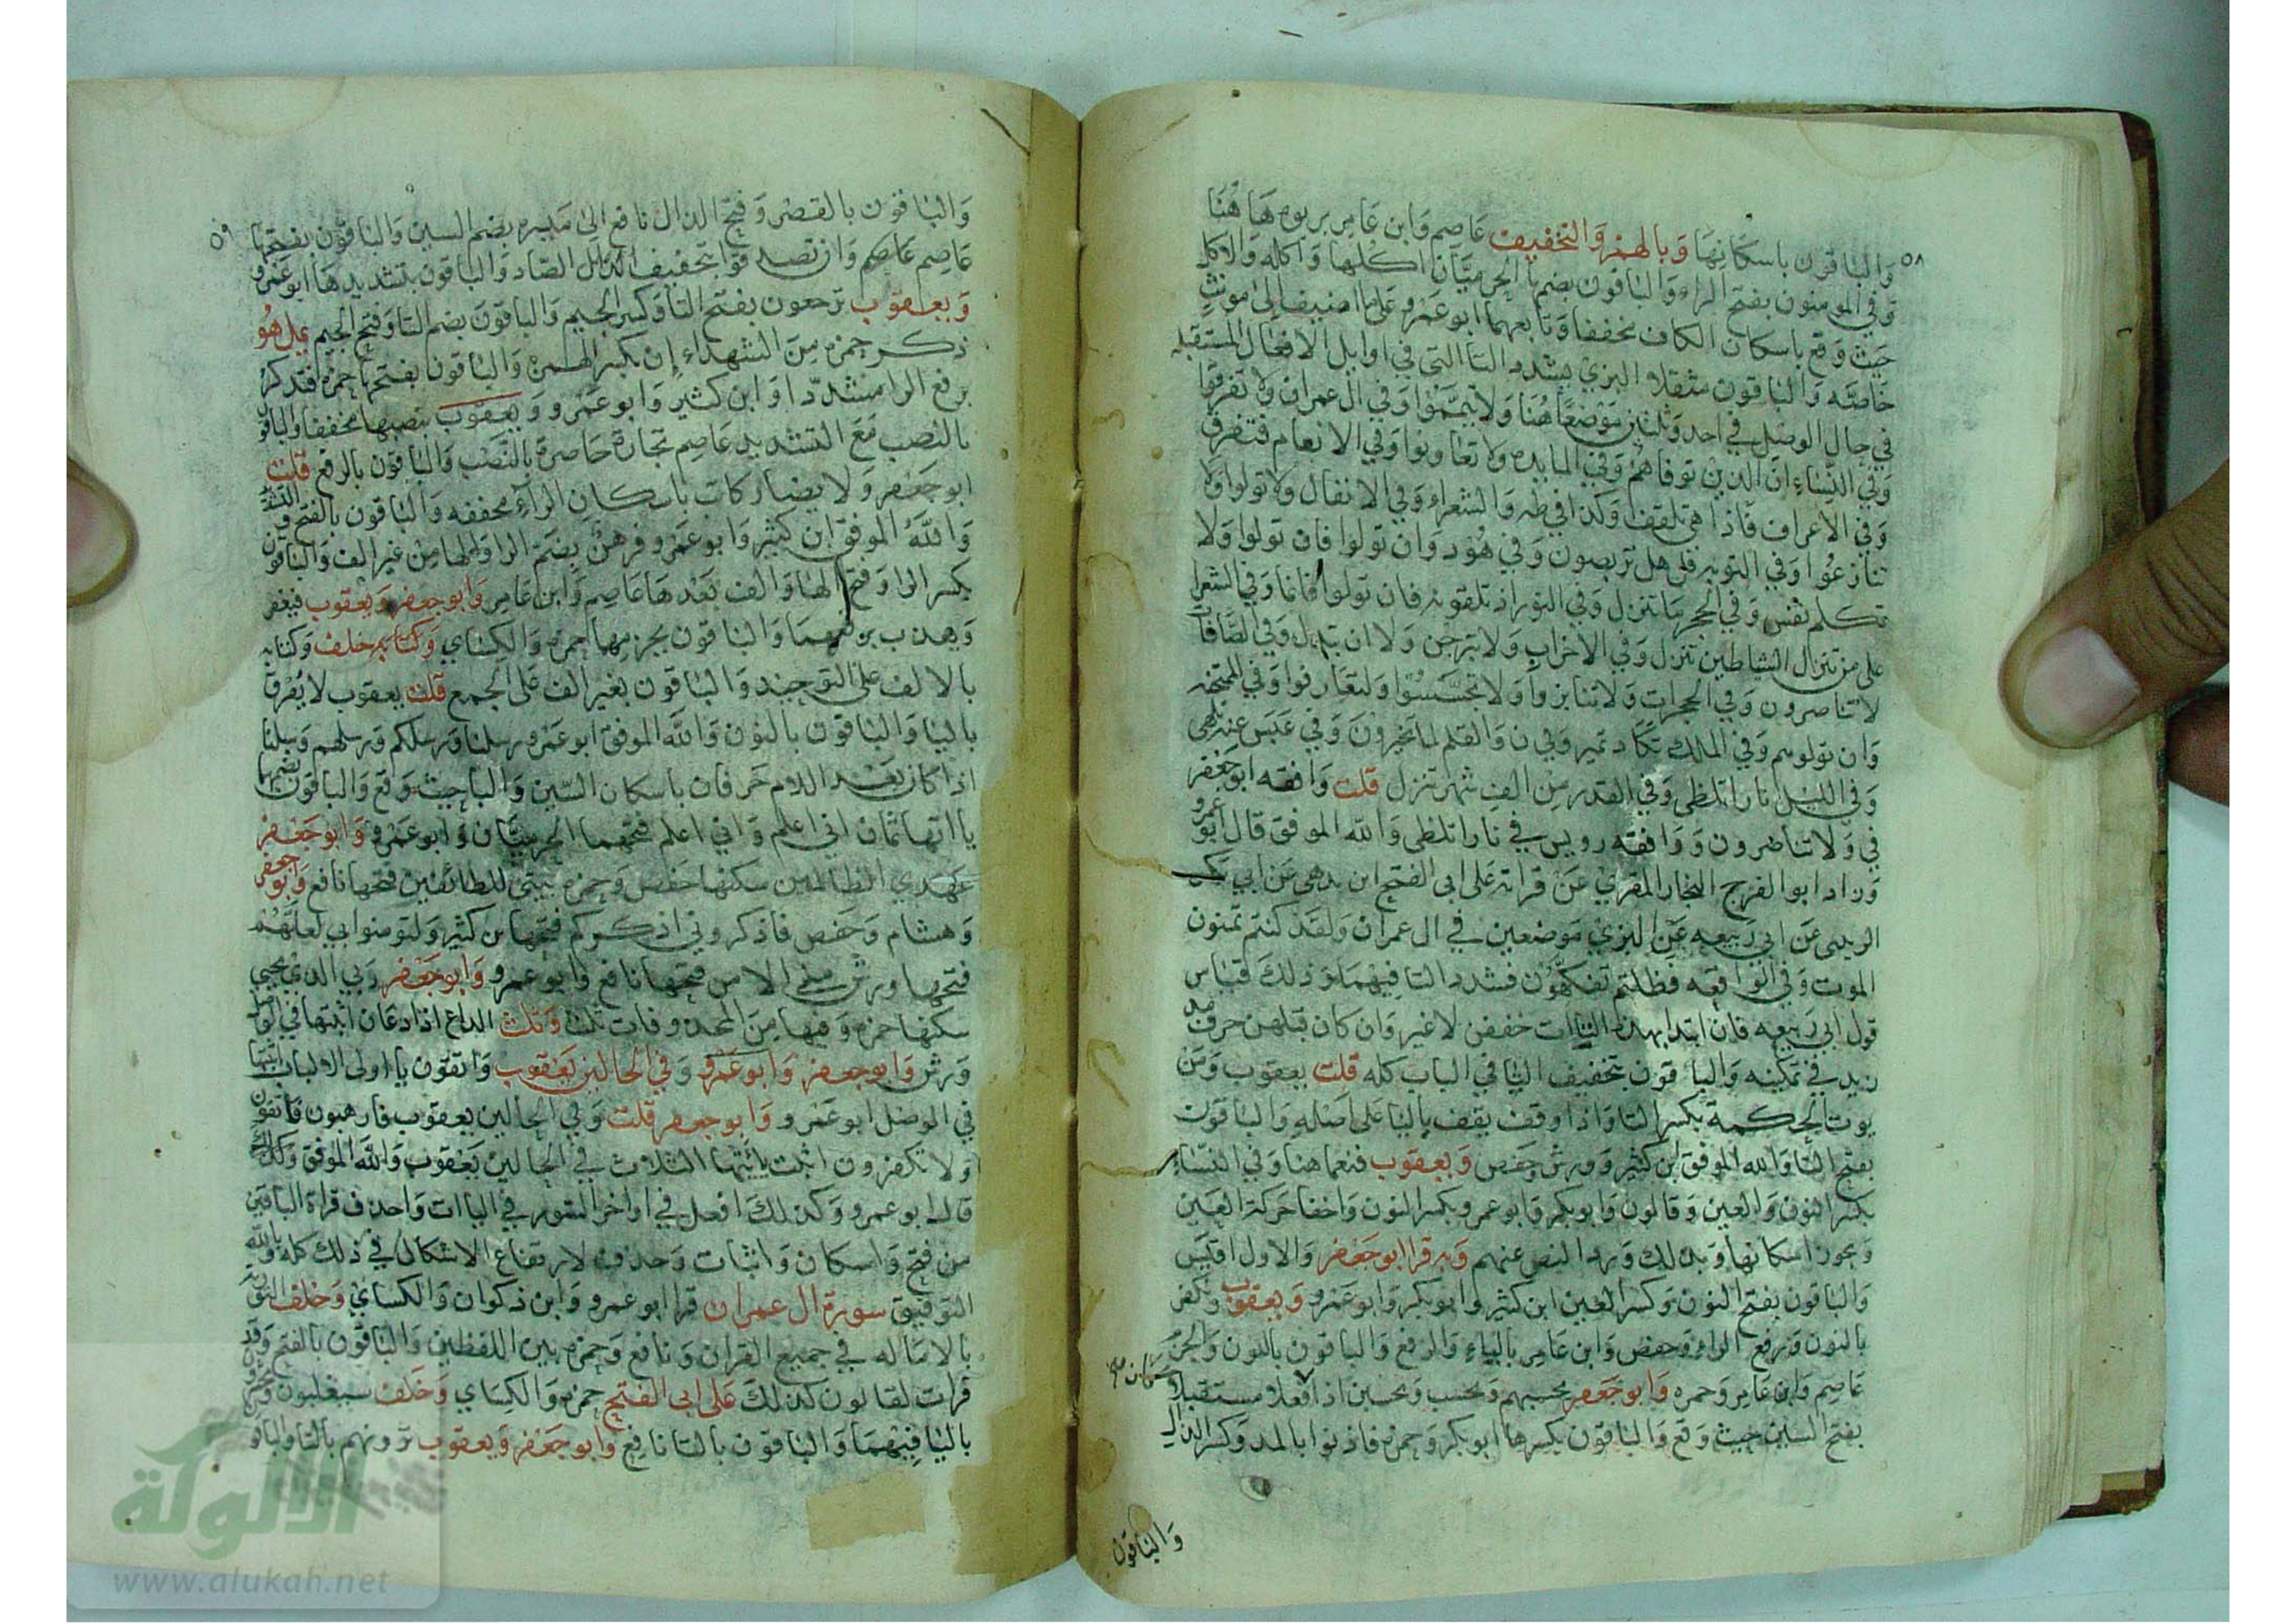 ٥٨
والباقون باسكانها وبالهمز والتخفيف عاصم وابن عامر بربوه هاهنا
وفي المومنون بفتح الراء والباقون بضمها الحرميان اكلها واكله والاكل
حيث وقع باسكان الكاف مخففا وتابعهما ابو عمرو على ما اضيف الى مونث
خاصه والباقون مثقلا البزي يشدد التا التي في اوايل الافعال المستقبله
في حال الوصل في احد وثلثين موضعا هنا ولا تيمموا وفي ال عمران ولا تفرقوا
وفي النساء ان الذين توفاهم وفي المايده ولا تعاونوا وفي الانعام فتفرق
وفي الاعراف فاذا هي تلقف وكذا في طه والشعراء وفي الانفال ولا تولوا ولا
تنازعوا وفي التوبه قل هل تربصون وفي هود وان تولوا فان تولوا ولا
تكلم نفس وفي الحجر ما تنزل وفي النور اذ تلقونه فان تولوا فانما وفي الشعرا
على من تنزل الشياطين تنزل وفي الاحزاب ولا تبرجن ولا ان تبدل وفي الصافات
لا تناصرون وفي الحجرات ولا تنابزوا ولا تجسسوا ولتعارفوا وفي الممتحنه
وان تولوهم وفي الملك تكاد تميز وفي ن والقلم لما تخيرون وفي عبس عنه تلهى
وفي الليل نارا تلظى وفي القدر من الف شهر تنزل قلت وافقه ابو جعفر
في ولا تناصرون ووافقه رويس في نارا تلظى والله الموفق قال ابو عمرو
وزاد ابو الفرج النجار المقري عن قراته على ابي الفتح ابن بدهن عن ابي بكر
الزينبى عن ابي ربيعه عن البزي موضعين في ال عمران ولقد كنتم تمنون
الموت وفي الواقعه فظلتم تفكهون فشدد التا فيهما وذلك قياس
قول ابي ربيعه فان ابتدا بهذه التاات خففن لا غير وان كان قبلهن حرف مد
زيد في تمكينه والباقون بتخفيف التا في الباب كله قلت يعقوب ومن
يوت الحكمة بكسر التا واذا وقف يقف باليا على اصله والباقون
بفتح التا والله الموفق ابن كثير وورش وحفص ويعقوب فنعما هنا وفي النساء
بكسر النون والعين وقالون وابو بكر وابو عمرو بكسر النون واخفا حركة العين
ويجوز اسكانها وبذلك ورد النص عنهم وبه قرا ابو جعفر والاول اقيس
والباقون بفتح النون وكسر العين ابن كثير وابو بكر وابو عمرو ويعقوب ونكفر
بالنون ورفع الراء وحفص وابن عامر بالياء والرفع والباقون بالنون والجزم
عاصم وابن عامر وحمزه وابو جعفر يحسبهم ويحسب ويحسبن اذا فعلا مستقبلا
بفتح السين حيث وقع والباقون بكسرها ابو بكر وحمزه فاذنوا بالمد وكسر الذال
والباقون
٥٩
والباقون بالقصر وفتح الذال نافع الى ميسره بضم السين والباقون بفتحها
عاصم وان تصدقوا بتخفيف الصاد والباقون بتشديدها ابو عمرو
ويعقوب ترجعون بفتح التا وكسر الجيم والباقون بضم التا وفتح الجيم يمل هو
ذكر حمزه من الشهداء إن بكسر الهمزه والباقون بفتحها حمزه فتذكر
برفع الرا مشددا وابن كثير وابو عمرو ويعقوب بنصبها مخففا والباقون
بالنصب مع التشديد عاصم تجارة حاضرة بالنصب والباقون بالرفع قلت
ابو جعفر ولا يضار كاتب باسكان الراء مخففه والباقون بالفتح والتشديد
والله الموفق ابن كثير وابو عمرو فرهن بضم الرا والها من غير الف والباقون
بكسر الرا وفتح الها والف بعدها عاصم وابن عامر وابو جعفر ويعقوب فيغفر
ويعذب برفعهما والباقون بجزمهما حمزه والكساي وخلف وكتابه
بالالف على التوحيد والباقون بغير الف على الجمع قلت يعقوب لا يفرق
باليا والباقون بالنون والله الموفق ابو عمرو رسلنا ورسلكم ورسلهم وسبلنا
اذا كان بعد اللام حرفان باسكان السين والبا حيث وقع والباقون بضمها
يااتها ثمان اني اعلم واني اعلم فتحهما الحرميان وابو عمرو وابو جعفر
عهدي الظالمين سكنها حفص وحمزه بيتي للطائفين فتحها نافع وابو جعفر
وهشام وحفص فاذكروني اذكركم فتحها ابن كثير وليومنوا بي لعلهم
فتحها ورش مني الا من فتحها نافع وابو عمرو وابو جعفر ربي الذي يحيي
سكنها حمزه وفيها من المحذوفات ثلث وثلث الداع اذا دعان اثبتها في الوصل
ورش وابو جعفر وابو عمرو وفي الحالين يعقوب واتقون يا اولى الالباب اثبتها
في الوصل ابو عمرو وابو جعفر قلت وفي الحالين يعقوب فارهبون فاتقون
ولا تكفرون اثبت يائتها الثلاث في الحالين يعقوب والله الموفق وكذلك
قال ابو عمرو وكذلك افعل في اواخر السور في الياات واحذف قراة الباقين
من فتح واسكان واثبات وحذف لارتفاع الاشكال في ذلك كله وبالله
التوفيق سورة ال عمران قرا ابو عمرو وابن ذكوان والكساي وخلف التورية
بالاماله في جميع القران ونافع وحمزه بين اللفظين والباقون بالفتح وقد
قرات لقالون كذلك على ابى الفتح حمزه والكساي وخلف سيغلبون ويحشرون
باليا فيهما والباقون بالتا نافع وابو جعفر ويعقوب ترونهم بالتا والباقون
الألوكة
www.alukah.net